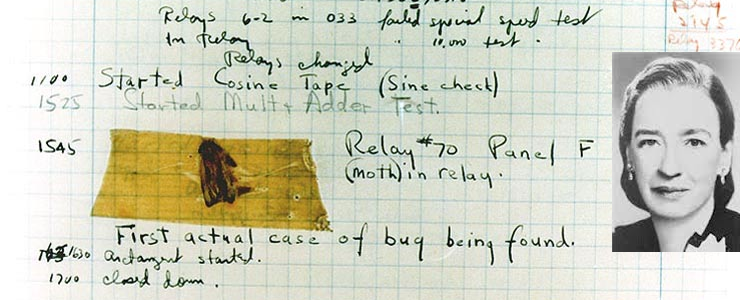 Relays 6-2 in 033 failed special speed test
In Relay " 10.000 test .
Relays changed
Relay
2145
Relay 3370
1100 Started Cosine Tape (Sine check)
1525 Started Mult + Adder Test.
1545 Relay #70 Panel F
(moth) in relay.
First actual case of bug being found.
1630 arctangent started.
1700 closed down.